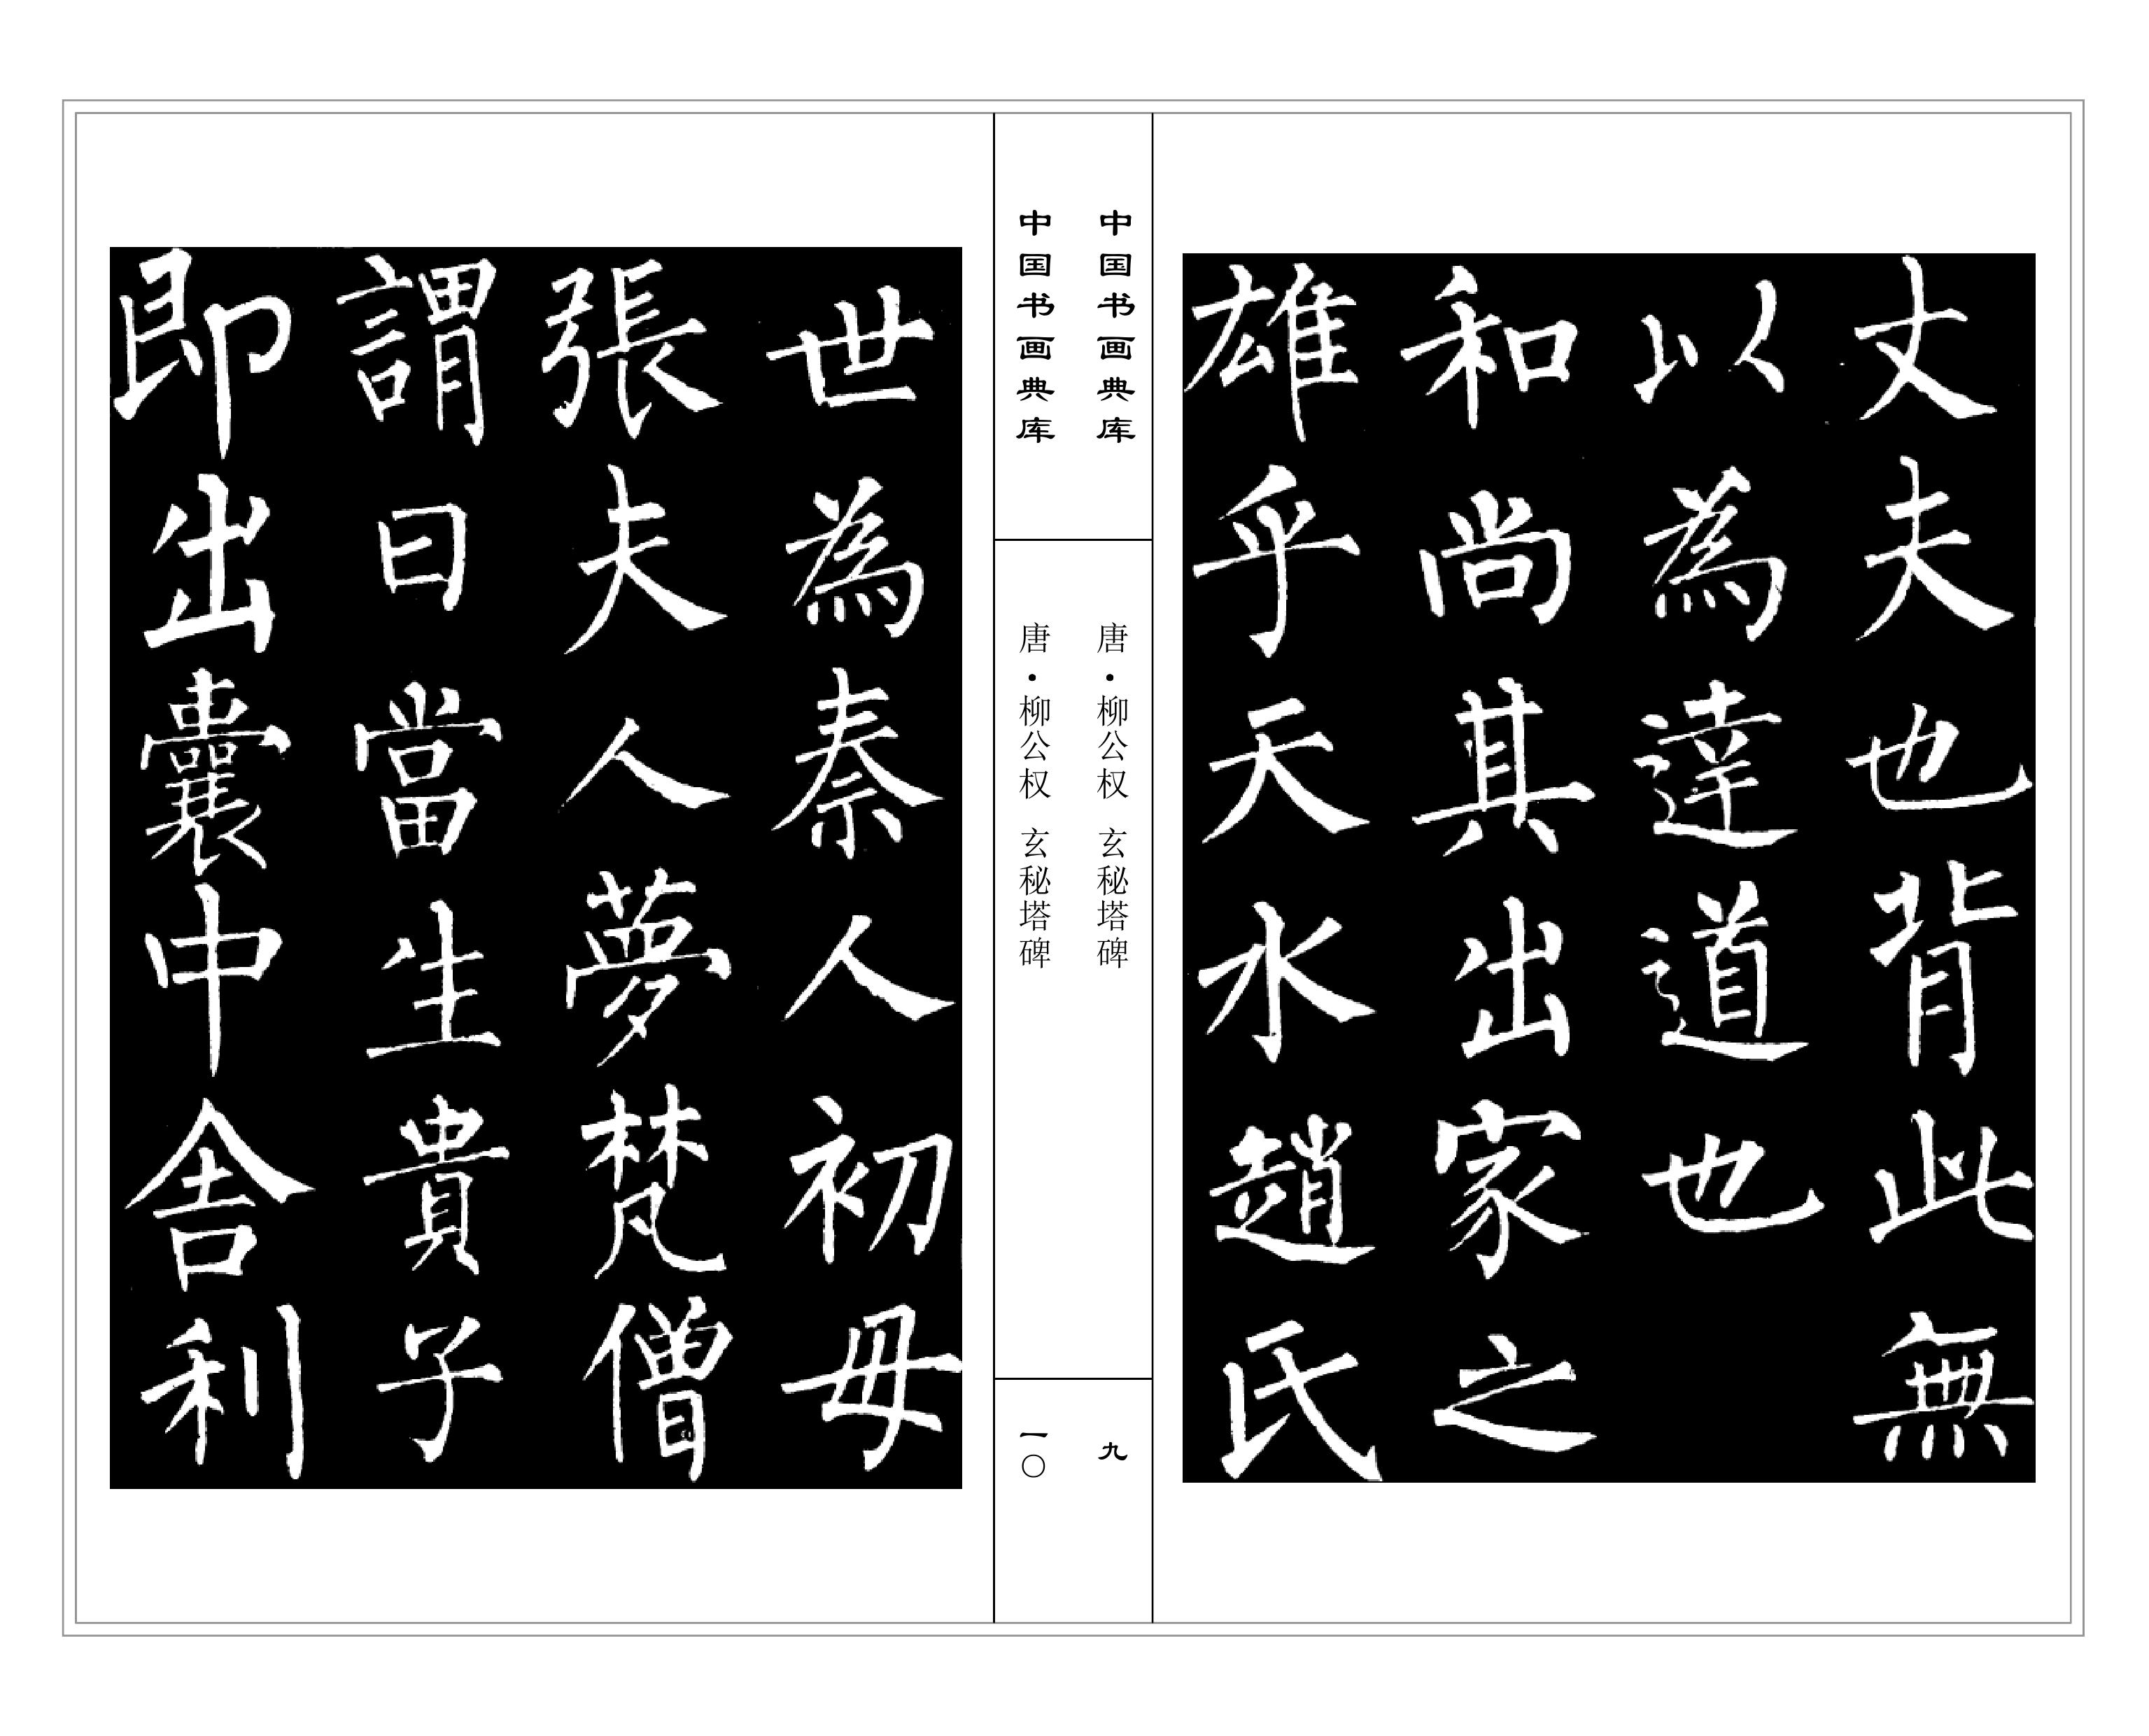 丈夫也背此無
以為達道也
和尚其出家之
雄乎天水趙氏
中国书画典库
唐·柳公权 玄秘塔碑
九
中国书画典库
唐·柳公权 玄秘塔碑
一〇
世為秦人初母
張夫人夢梵僧
謂曰當生貴子
即出囊中舍利